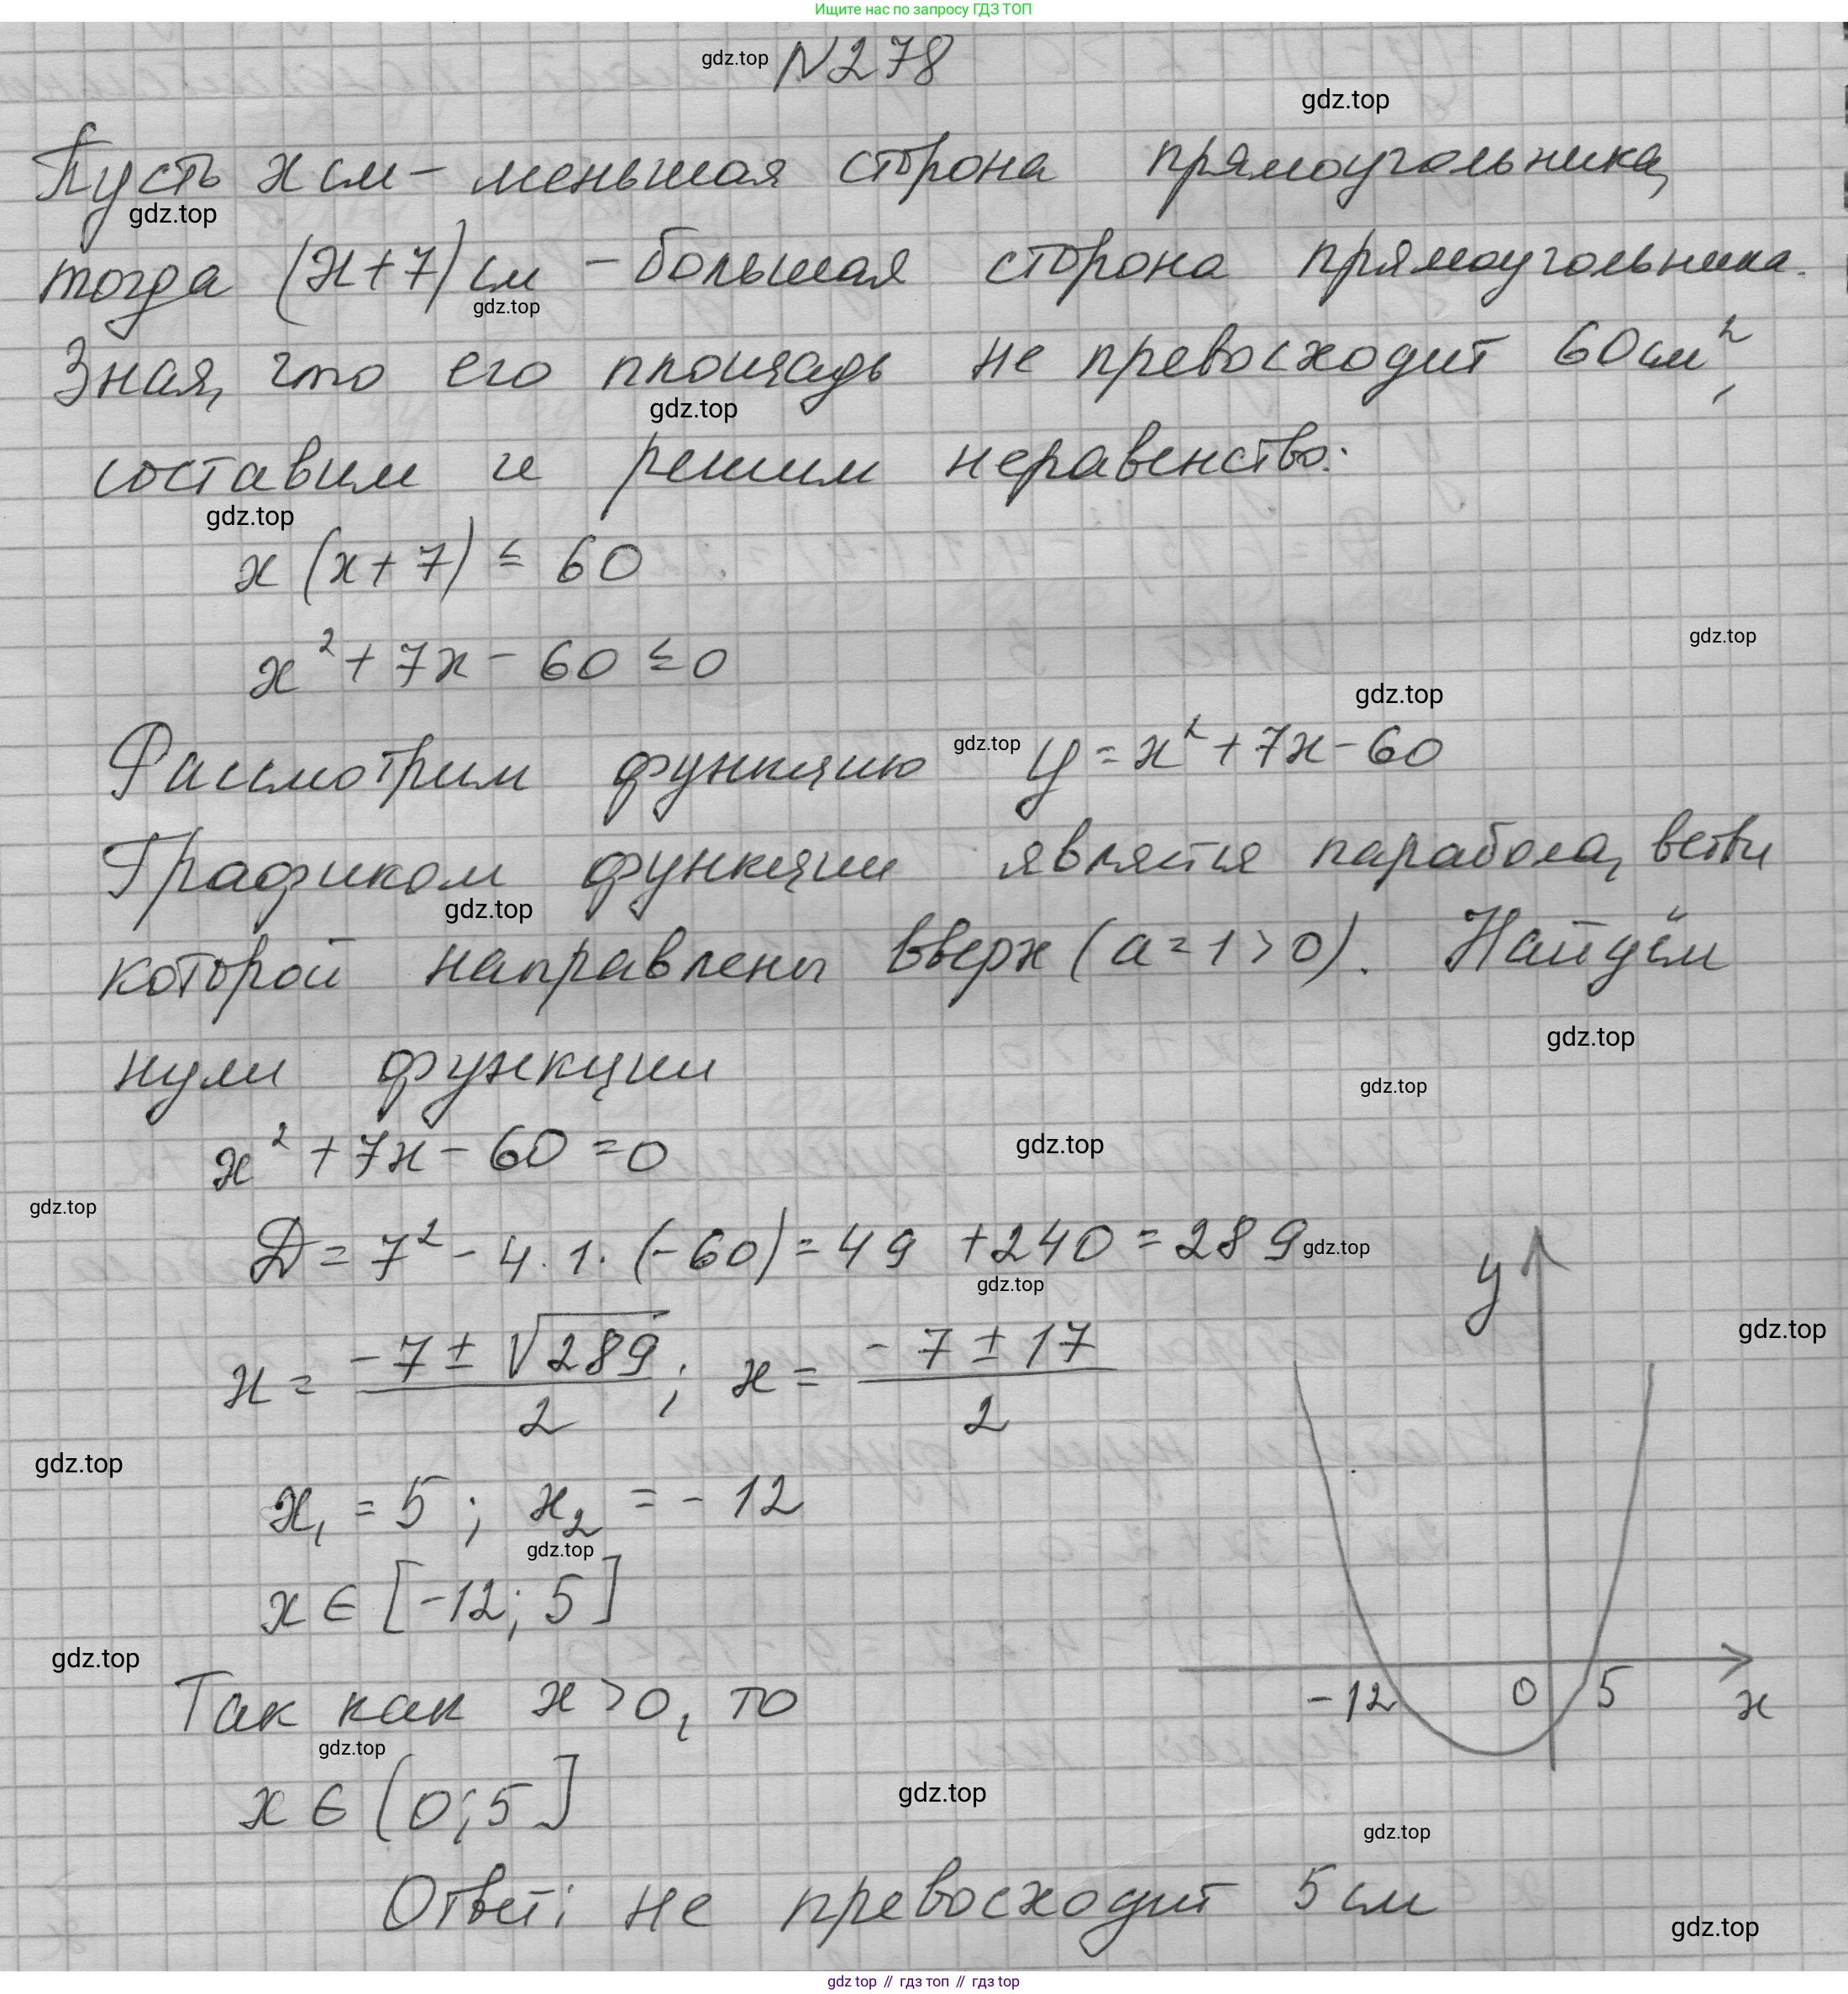 Ищите нас по запросу ГДЗ ТОП
gdz.top N278
gdz.top
Пусть x см - меньшая сторона прямоугольника,
gdz.top
тогда (x+7) см - большая сторона прямоугольника.
gdz.top
Зная, что его площадь не превосходит 60 см²,
gdz.top
составим и решим неравенство:
gdz.top
x(x+7) ≤ 60
gdz.top
x² + 7x - 60 ≤ 0
gdz.top
Рассмотрим функцию gdz.top y = x² + 7x - 60
Графиком функции является парабола, ветви
gdz.top
которой направлены вверх (a=1>0). Найдём
gdz.top
нули функции
gdz.top
x² + 7x - 60 = 0
gdz.top
gdz.top
D = 7² - 4·1·(-60) = 49 + 240 = 289 gdz.top
gdz.top
y
gdz.top
x = (-7 ± √289)/2 ; x = (-7 ± 17)/2
gdz.top
x₁ = 5 ; x₂ = -12
gdz.top
x ∈ [-12; 5]
gdz.top
-12 0 5 x
Так как x > 0, то
gdz.top
x ∈ (0; 5]
gdz.top
gdz.top
Ответ: не превосходит 5 см
gdz.top
gdz top // гдз топ // гдз top